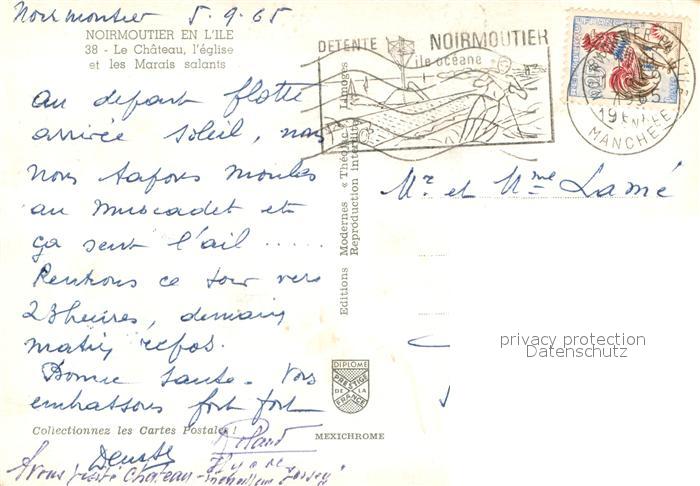 Noirmoutier 5.9.65
NOIRMOUTIER EN L'ILE
38 - Le Château, l'église
et les Marais salants
DETENTE NOIRMOUTIER
île océane
MANCHE
au depart flotte
arrivée Soleil, nous
nous tapons moules
au muscadet et
ça sent l'ail .....
Rentrons ce soir vers
23 heures, demain
matin repos.
Bonne Santé. Vous
embrassons fort fort
Mr. et Mme Lamé
Editions Modernes « Théojac » Limoges
Reproduction interdite
privacy protection
Datenschutz
DIPLOME
PRESTIGE
DE LA
FRANCE
Collectionnez les Cartes Postales !
MEXICHROME
Roland
Denyse
Avons visité Château -